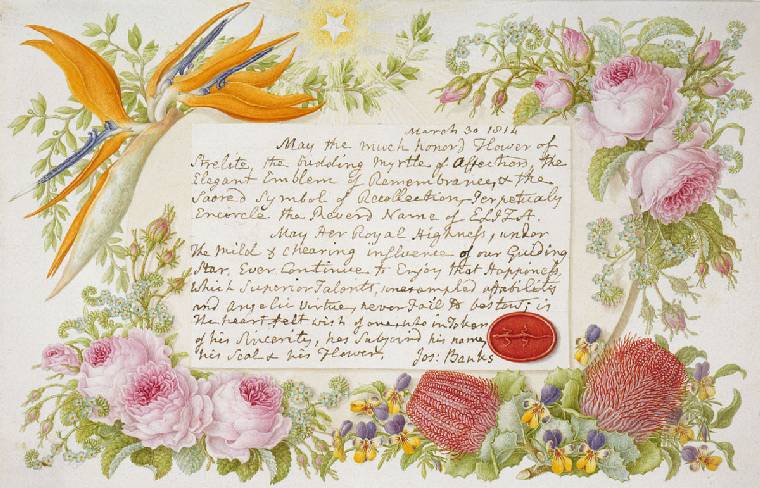 March 30 1814
May the much honord Flower of
Strelitz, the budding Myrtle of Affection, the
Elegant Emblem of Remembrance, & the
Sacred Symbol of Recollection, Perpetualy
Encircle the Reverd Name of ELIZA.
May Her Royal Highness, under
the mild & chearing influence of our Guiding
Star, Ever Continue to Enjoy that Happiness
which Superior Talents, unexampled affability
and Angelic Virtue, never Fail to bestow; is
the heart felt wish of one, who in Token
of his Sincerity, has Subjoined his name
his Seal & his Flower. Jos: Banks